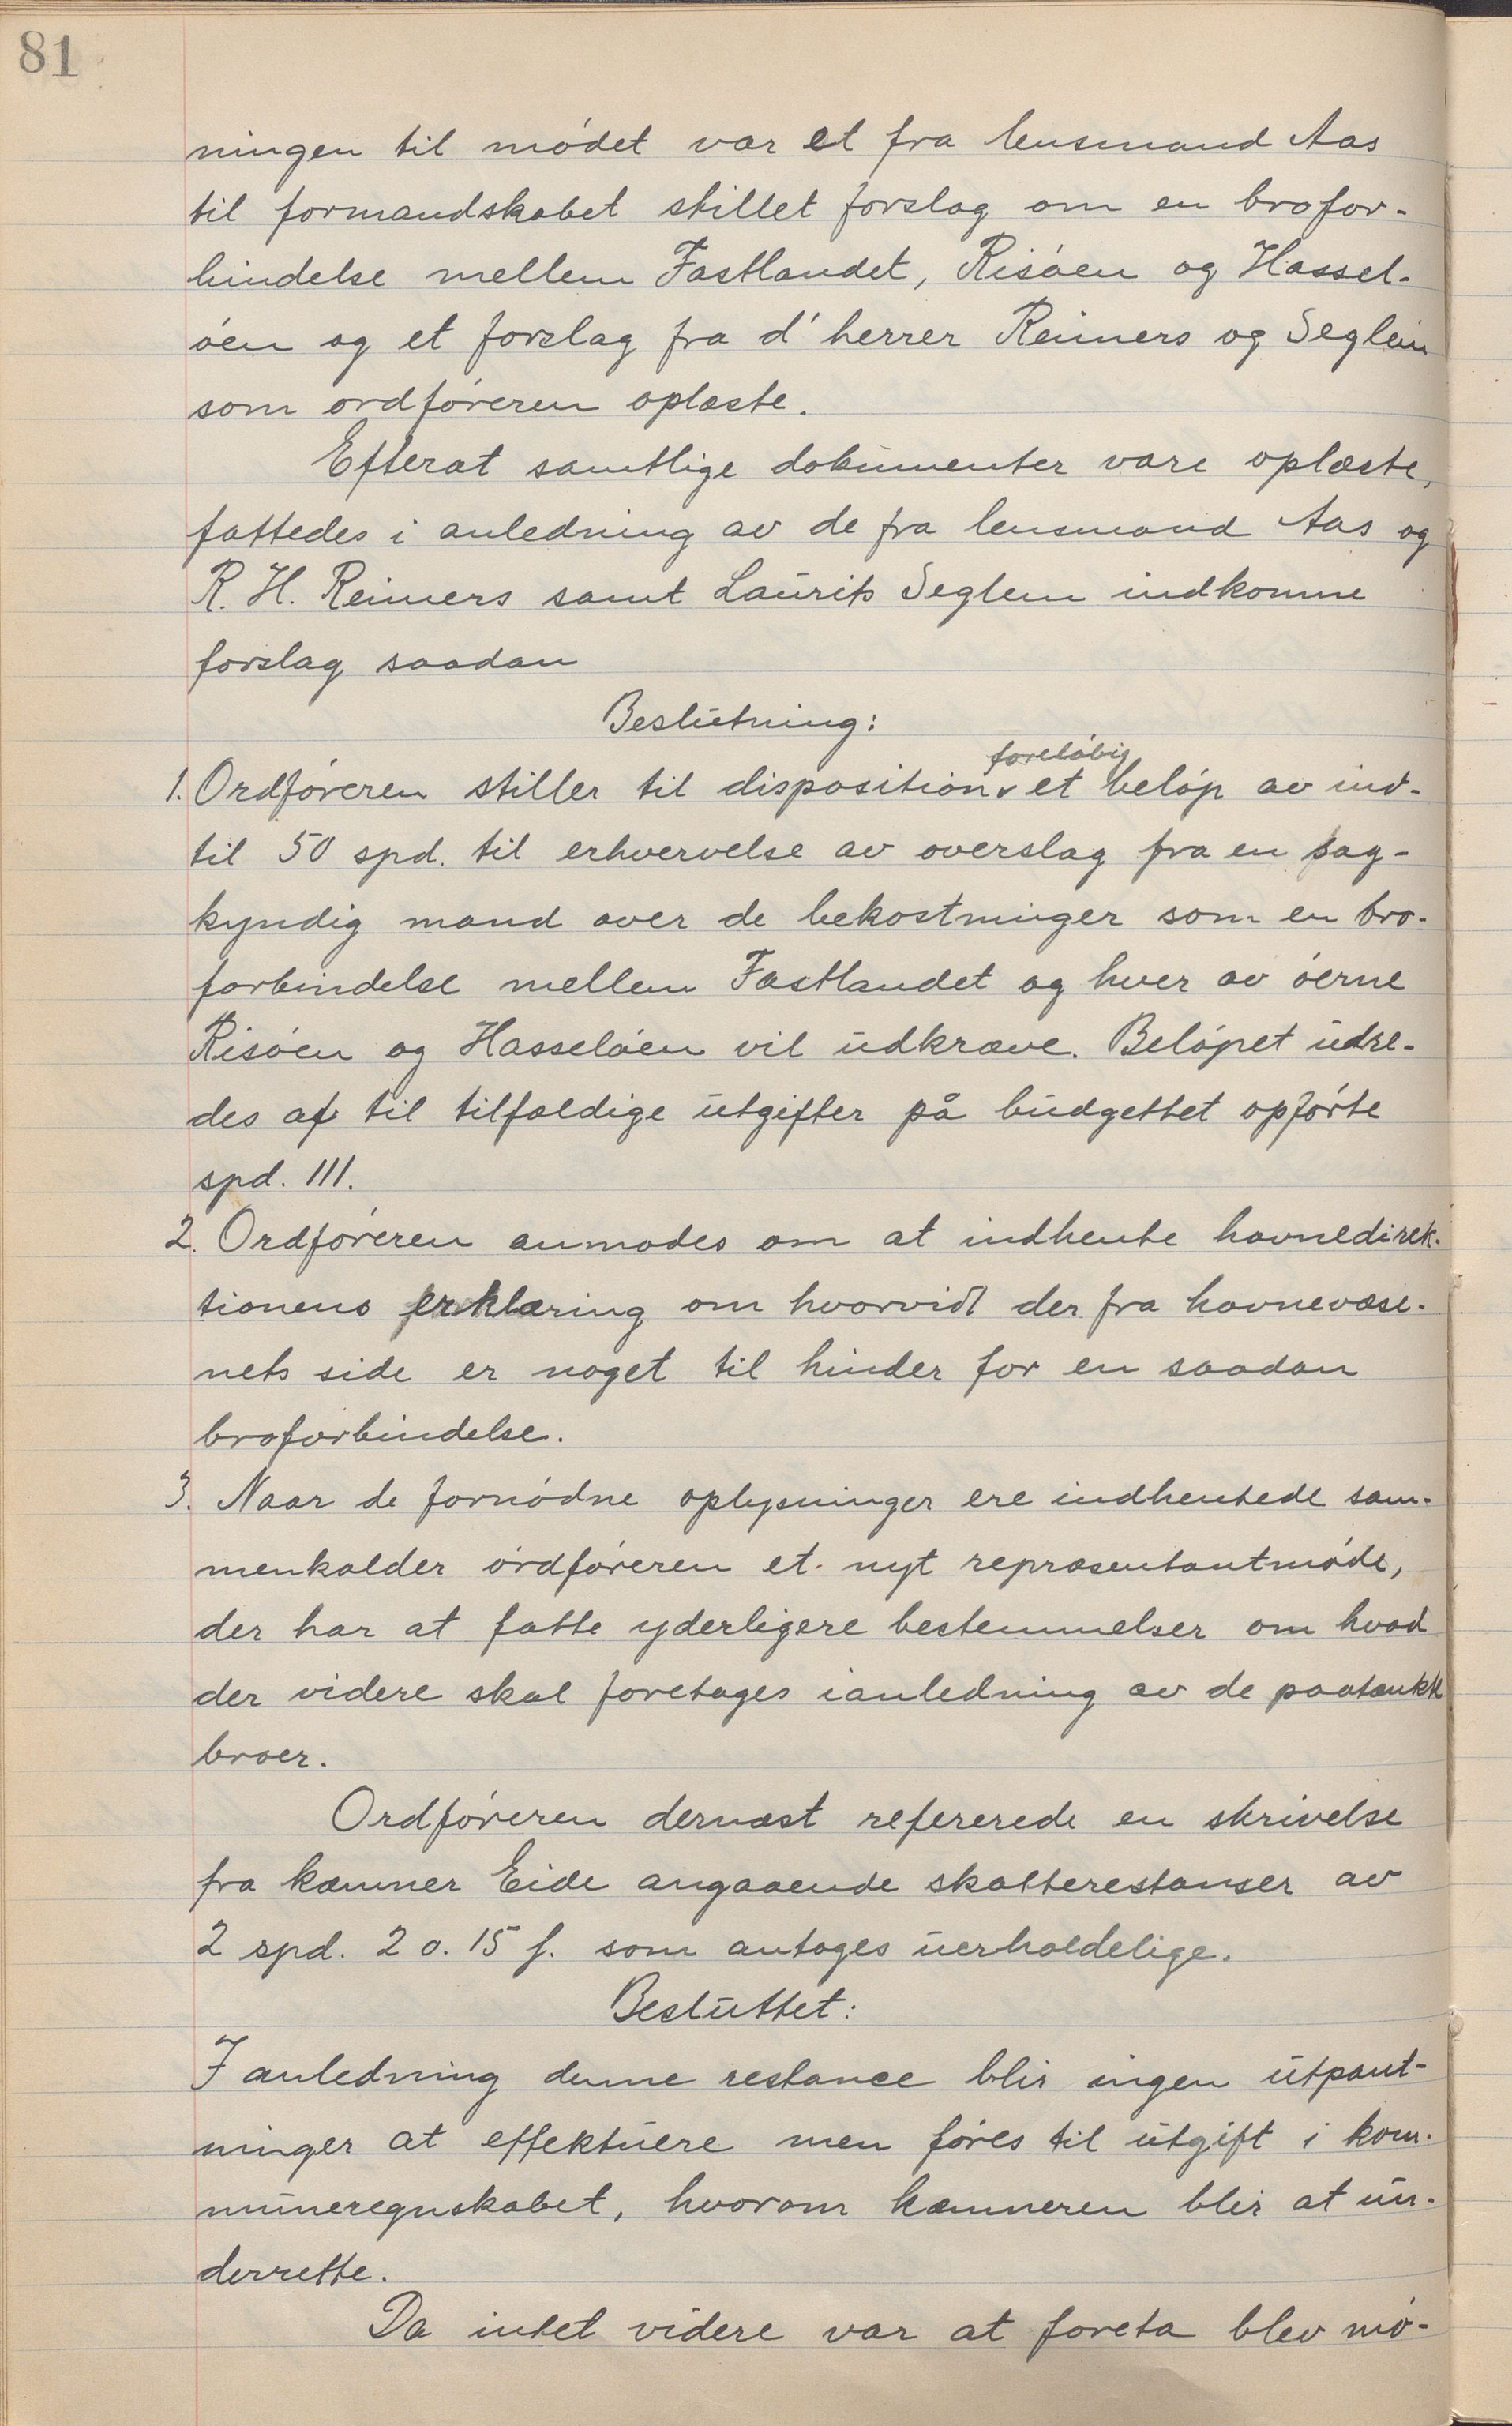 81
ningen til mødet var et fra lensmand Aas
til formandskabet stillet forslag om en brofor-
bindelse mellem Fastlandet, Risøen og Hassel-
øen og et forslag fra d' herrer Reimers og Seglem
som ordføreren oplæste.
Efterat samtlige dokumenter vare oplæste,
fattedes i anledning av de fra lensmand Aas og
R. H. Reimers samt Laurits Seglem indkomne
forslag saadan
Beslutning:
foreløbig
1. Ordføreren stiller til disposition et beløp av ind-
til 50 spd. til erhvervelse av overslag fra en sag-
kyndig mand over de bekostninger som en bro-
forbindelse mellem Fastlandet og hver av øerne
Risøen og Hasseløen vil udkræve. Beløpet udre-
des af til tilfældige utgifter på budgettet opførte
spd. 111.
2. Ordføreren anmodes om at indhente havnedirek-
tionens erklæring om hvorvidt der fra havnevæse-
nets side er noget til hinder for en saadan
broforbindelse.
3. Naar de fornødne oplysninger ere indhentede sam-
menkalder ordføreren et nyt repræsentantmøde,
der har at fatte yderligere bestemmelser om hvad
der videre skal foretages ianledning av de paatænkte
broer.
Ordføreren dernæst refererede en skrivelse
fra kæmner Eide angaaende skatterestanser av
2 spd. 2 o. 15 s. som antages uerholdelige.
Besluttet:
I anledning denne restance blir ingen utpant-
ninger at effektuere men føres til utgift i kom-
muneregnskabet, hvorom kæmneren blir at un-
derrette.
Da intet videre var at foreta blev mø-